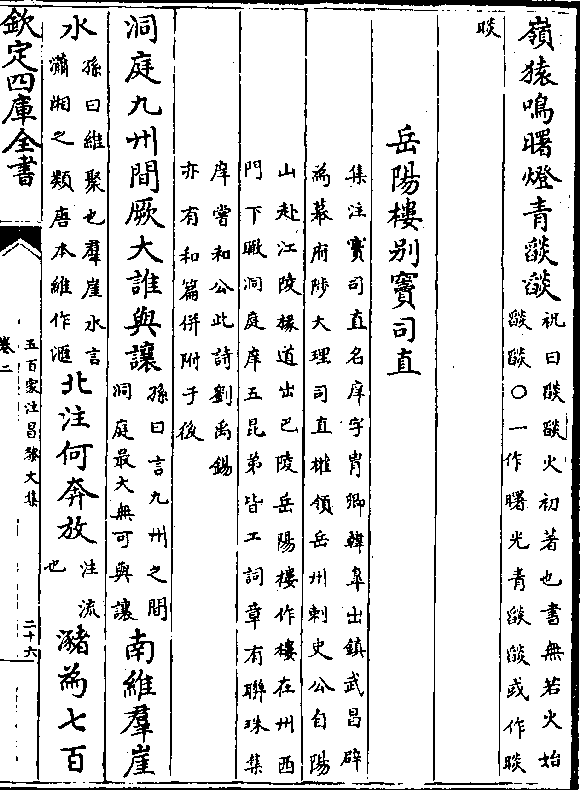 嶺猿鳴曙燈青燄燄祝曰燄燄火初著也書無若火始
燄燄○一作曙光青燄燄或作晱
晱
岳陽樓别竇司直
集注竇司直名庠字胄卿韓臯出鎮武昌辟
為幕府陟大理司直權領岳州刺史公自陽
山赴江陵掾道出巴陵岳陽樓作樓在州西
門下瞰洞庭庠五昆弟皆工詞章有聯珠集
庠嘗和公此詩劉禹錫
亦有和篇併附于後
洞庭九州間厥大誰與讓孫曰言九州之間
洞庭最大無可與讓南維羣崖
水孫曰維聚也羣崖水言
瀟湘之類唐本維作滙北注何奔放注流
也瀦為七百
欽定四庫全書
卷二
五百家注昌黎文集
二十六